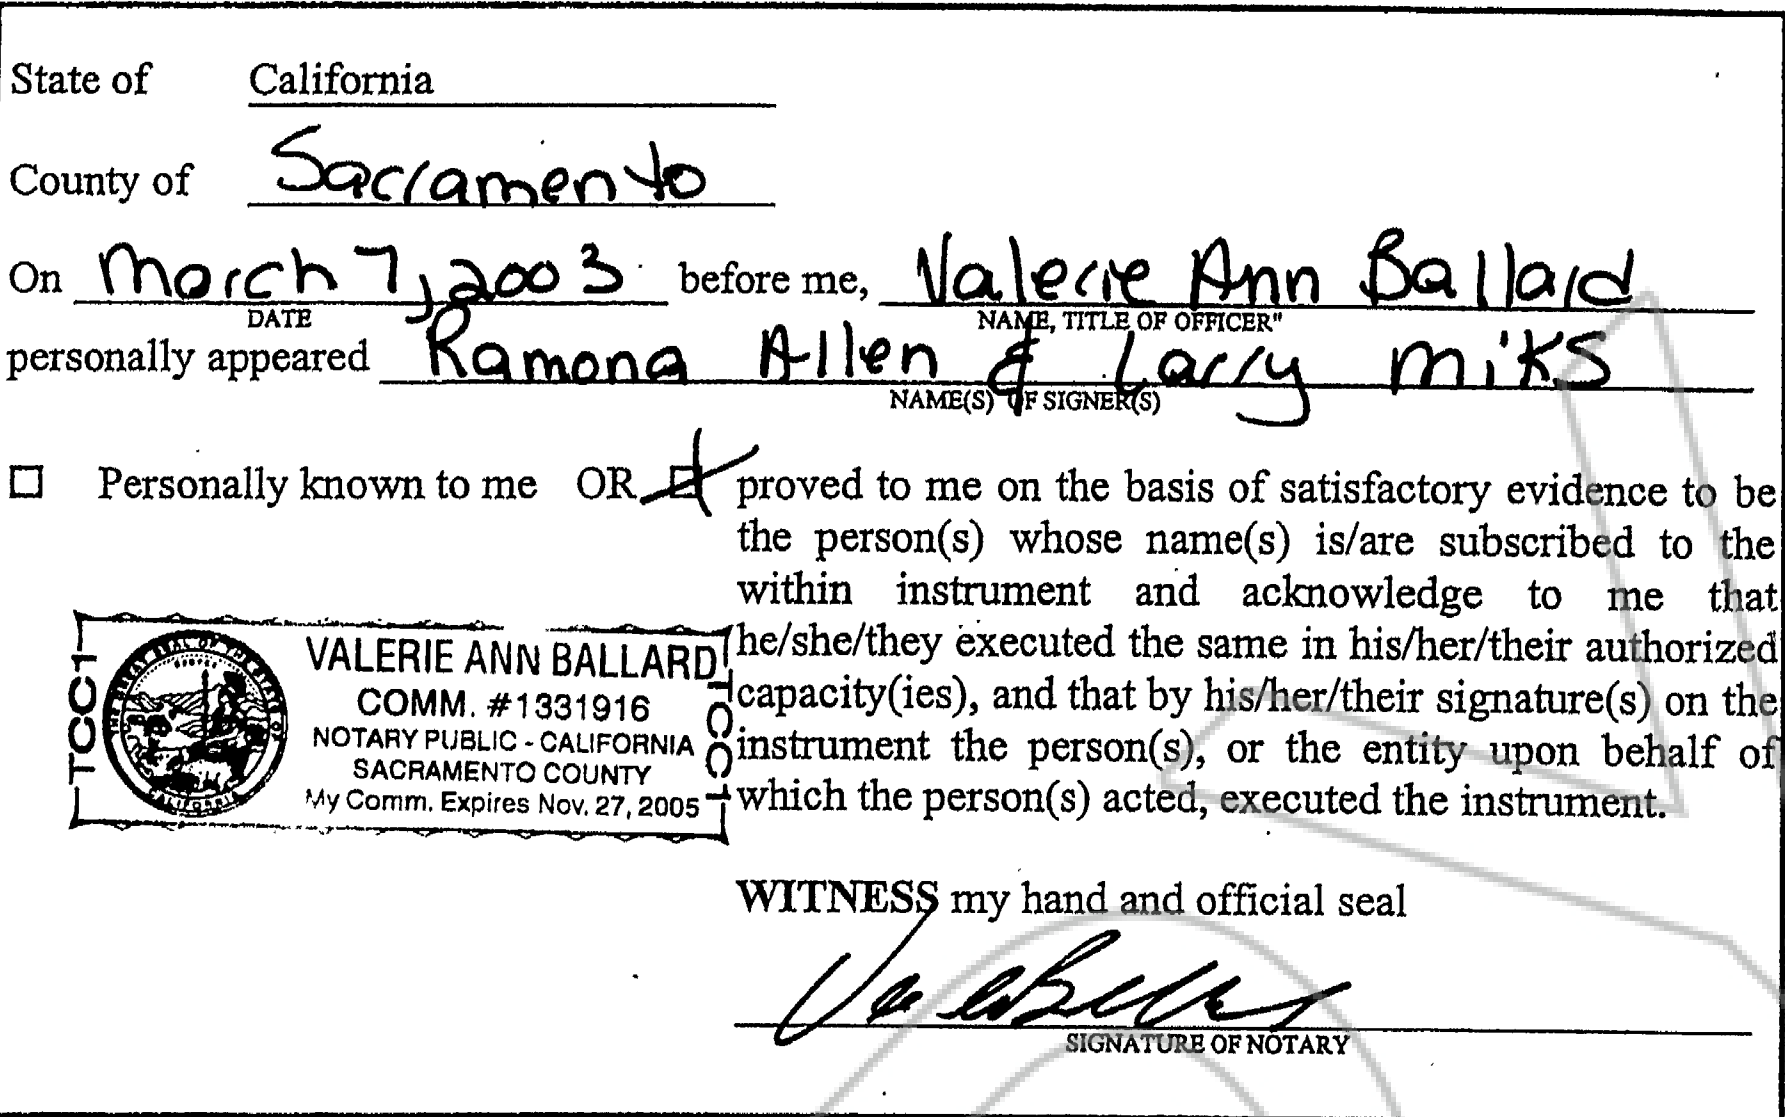 State of California
County of Sacramento
On March 7, 2003 before me, Valerie Ann Ballard
DATE NAME, TITLE OF OFFICER"
personally appeared Ramona Allen & Larry Miks
NAME(S) OF SIGNER(S)
☐ Personally known to me OR ☒ proved to me on the basis of satisfactory evidence to be
the person(s) whose name(s) is/are subscribed to the
within instrument and acknowledge to me that
he/she/they executed the same in his/her/their authorized
capacity(ies), and that by his/her/their signature(s) on the
instrument the person(s), or the entity upon behalf of
which the person(s) acted, executed the instrument.
TCC1
THE GREAT SEAL OF THE STATE OF CALIFORNIA
VALERIE ANN BALLARD
COMM. #1331916
NOTARY PUBLIC - CALIFORNIA
SACRAMENTO COUNTY
My Comm. Expires Nov. 27, 2005
TCC1
WITNESS my hand and official seal
SIGNATURE OF NOTARY